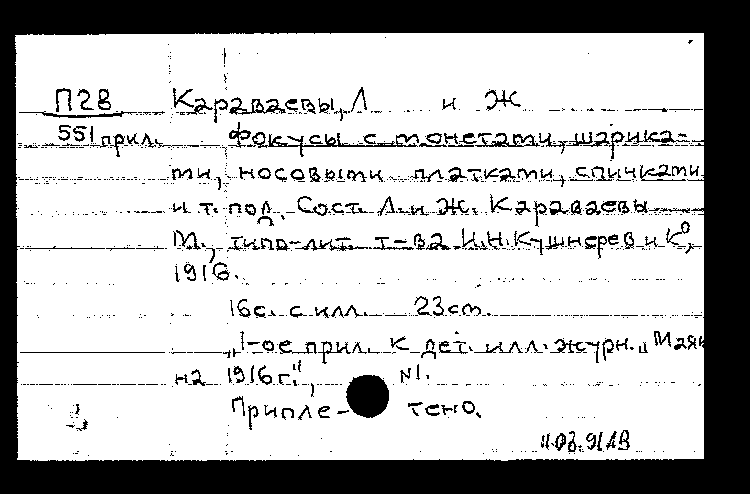 П28 Караваевы, Л и Ж
551 прил. Фокусы с монетами, шарика-
ми, носовыми платками, спичками
и т. под. Сост. Л. и Ж. Караваевы
М., типо-лит. т-ва И.Н. Кушнерев и К°,
1916.
16с. с илл. 23см.
„1-ое прил. к дет. илл. журн. „Маяк
на 1916 г.", №1.
Припле- тено.